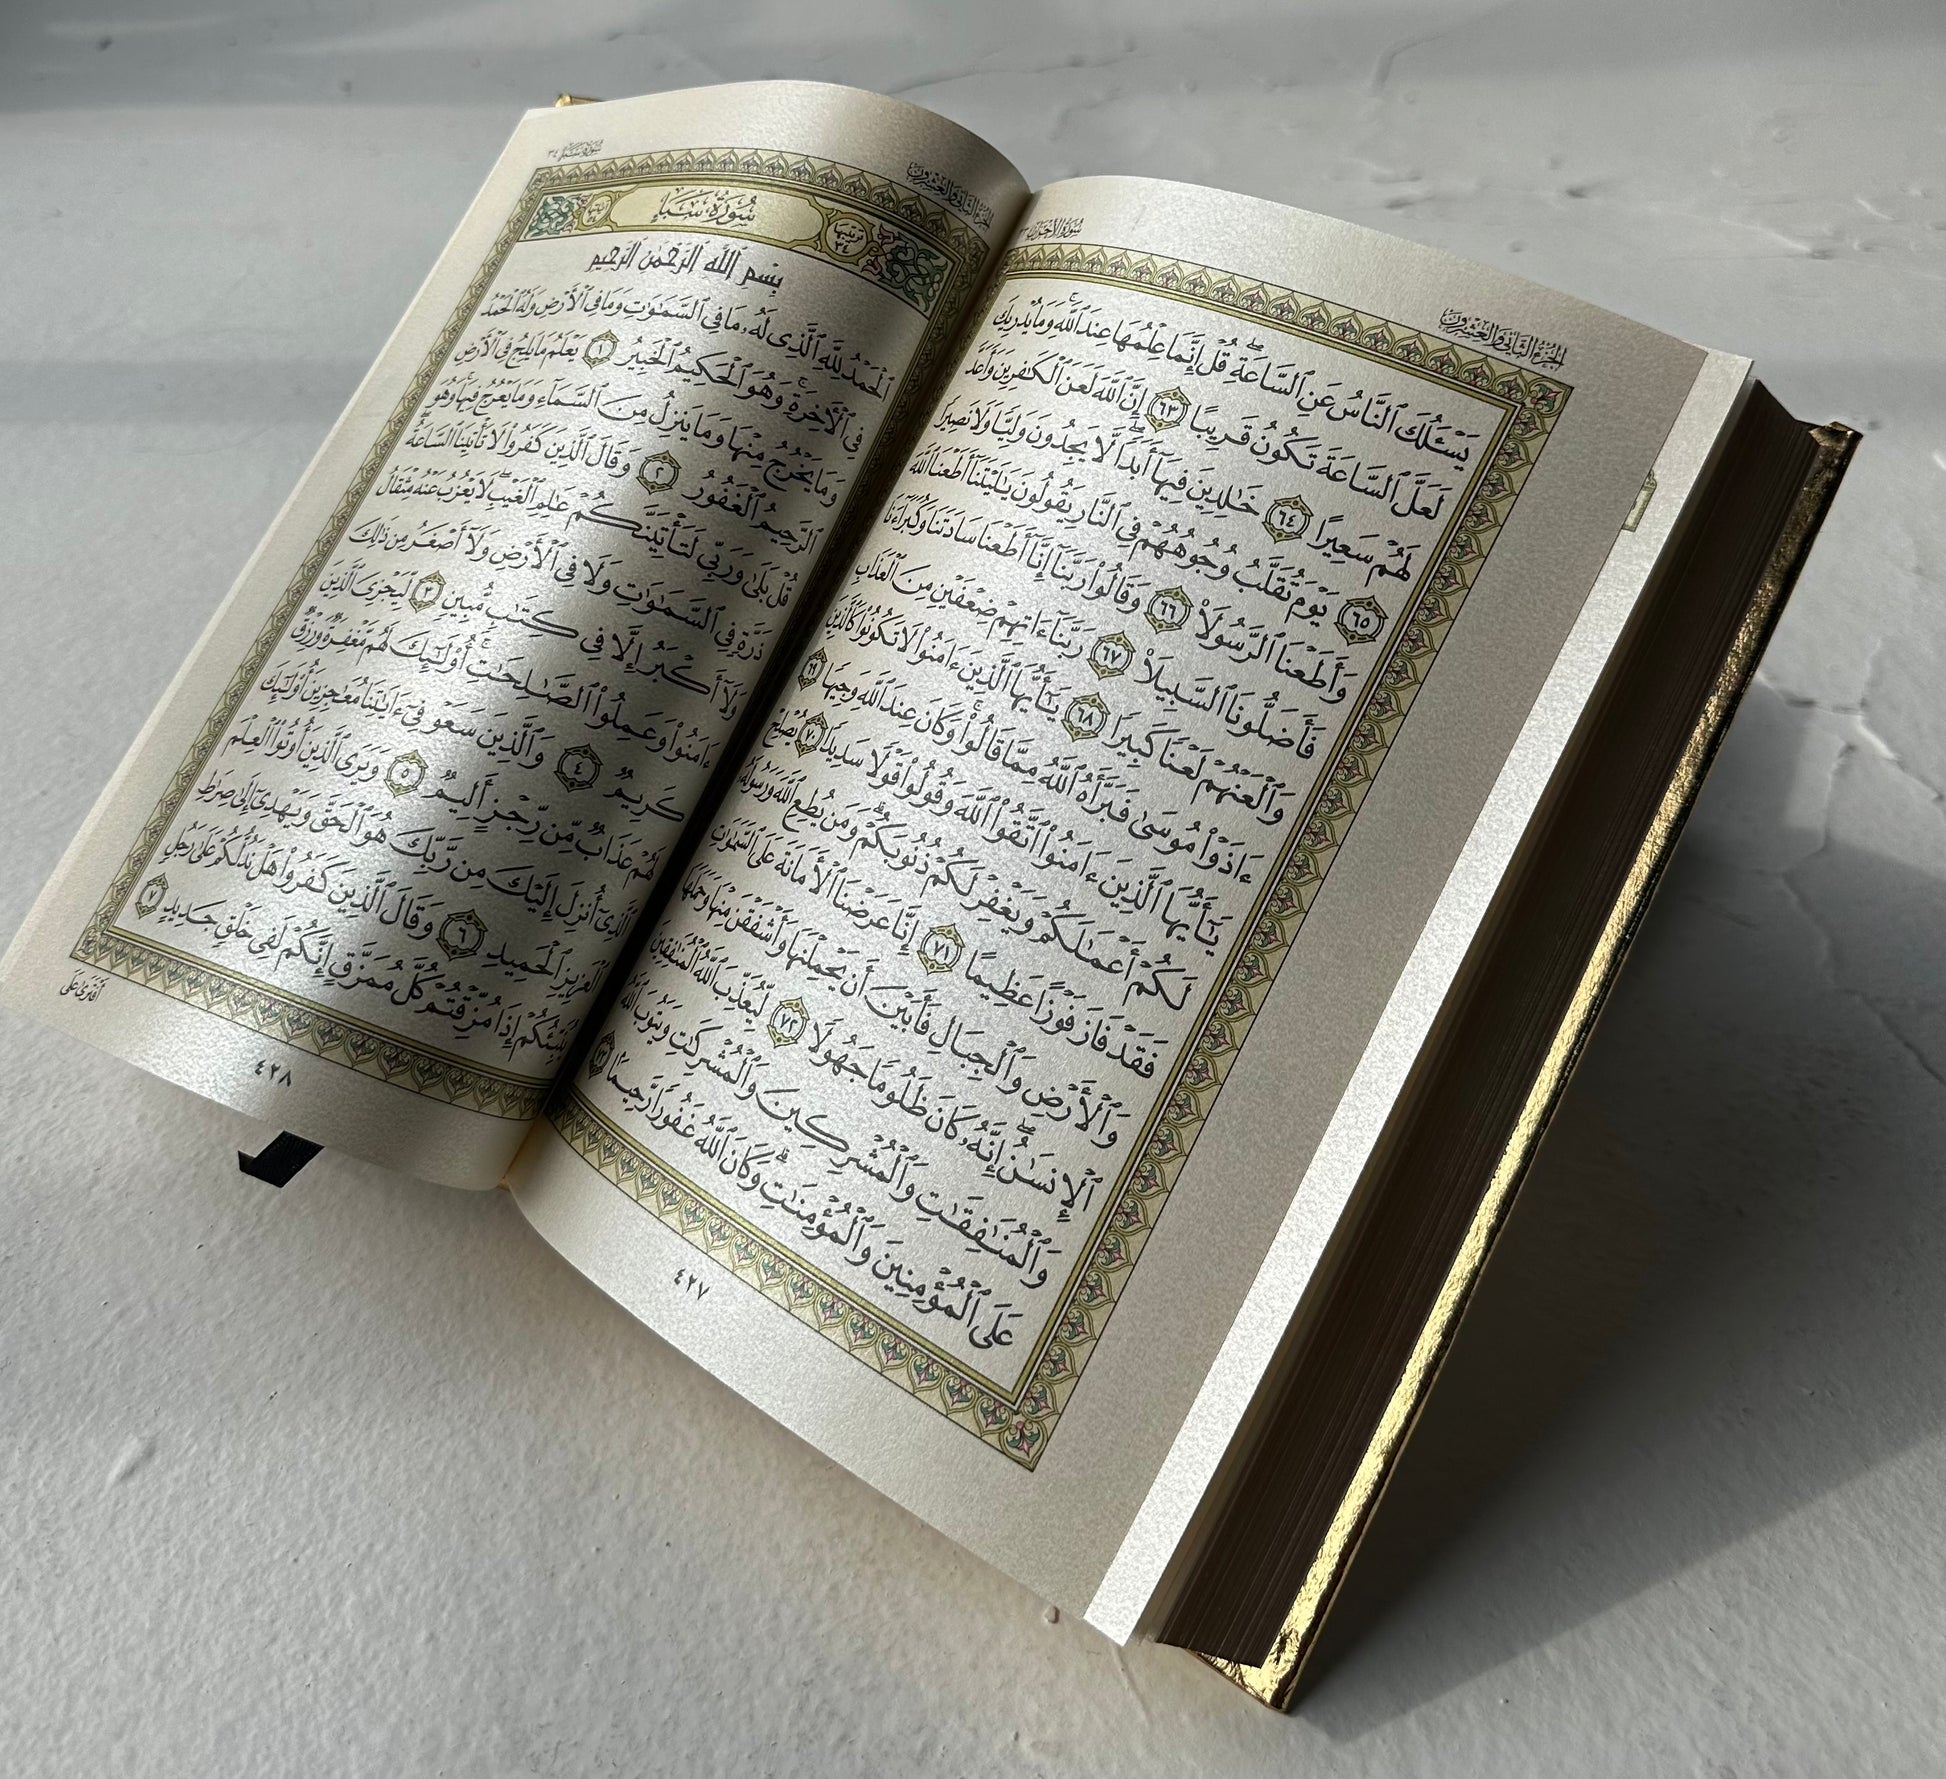 الجزء الثاني والعشرون
سورة الأحزاب
يَسْـَٔلُكَ ٱلنَّاسُ عَنِ ٱلسَّاعَةِ ۖ قُلْ إِنَّمَا عِلْمُهَا عِندَ ٱللَّهِ ۚ وَمَا يُدْرِيكَ
لَعَلَّ ٱلسَّاعَةَ تَكُونُ قَرِيبًا ٦٣ إِنَّ ٱللَّهَ لَعَنَ ٱلْكَٰفِرِينَ وَأَعَدَّ
لَهُمْ سَعِيرًا ٦٤ خَٰلِدِينَ فِيهَآ أَبَدًا ۖ لَّا يَجِدُونَ وَلِيًّا وَلَا نَصِيرًا
٦٥ يَوْمَ تُقَلَّبُ وُجُوهُهُمْ فِى ٱلنَّارِ يَقُولُونَ يَٰلَيْتَنَآ أَطَعْنَا ٱللَّهَ
وَأَطَعْنَا ٱلرَّسُولَا۠ ٦٦ وَقَالُوا۟ رَبَّنَآ إِنَّآ أَطَعْنَا سَادَتَنَا وَكُبَرَآءَنَا
فَأَضَلُّونَا ٱلسَّبِيلَا۠ ٦٧ رَبَّنَآ ءَاتِهِمْ ضِعْفَيْنِ مِنَ ٱلْعَذَابِ
وَٱلْعَنْهُمْ لَعْنًا كَبِيرًا ٦٨ يَٰٓأَيُّهَا ٱلَّذِينَ ءَامَنُوا۟ لَا تَكُونُوا۟ كَٱلَّذِينَ
ءَاذَوْا۟ مُوسَىٰ فَبَرَّأَهُ ٱللَّهُ مِمَّا قَالُوا۟ ۚ وَكَانَ عِندَ ٱللَّهِ وَجِيهًا ٦٩
يَٰٓأَيُّهَا ٱلَّذِينَ ءَامَنُوا۟ ٱتَّقُوا۟ ٱللَّهَ وَقُولُوا۟ قَوْلًا سَدِيدًا ٧٠ يُصْلِحْ
لَكُمْ أَعْمَٰلَكُمْ وَيَغْفِرْ لَكُمْ ذُنُوبَكُمْ ۗ وَمَن يُطِعِ ٱللَّهَ وَرَسُولَهُۥ
فَقَدْ فَازَ فَوْزًا عَظِيمًا ٧١ إِنَّا عَرَضْنَا ٱلْأَمَانَةَ عَلَى ٱلسَّمَٰوَٰتِ
وَٱلْأَرْضِ وَٱلْجِبَالِ فَأَبَيْنَ أَن يَحْمِلْنَهَا وَأَشْفَقْنَ مِنْهَا وَحَمَلَهَا
ٱلْإِنسَٰنُ ۖ إِنَّهُۥ كَانَ ظَلُومًا جَهُولًا ٧٢ لِّيُعَذِّبَ ٱللَّهُ ٱلْمُنَٰفِقِينَ
وَٱلْمُنَٰفِقَٰتِ وَٱلْمُشْرِكِينَ وَٱلْمُشْرِكَٰتِ وَيَتُوبَ ٱللَّهُ
عَلَى ٱلْمُؤْمِنِينَ وَٱلْمُؤْمِنَٰتِ ۗ وَكَانَ ٱللَّهُ غَفُورًا رَّحِيمًا ٧٣
٤٢٧
الجزء الثاني والعشرون
سورة سبأ ٣٤
ترتيبها ٣٤
سُورَةُ سَبَإٍ
بِسْمِ ٱللَّهِ ٱلرَّحْمَٰنِ ٱلرَّحِيمِ
ٱلْحَمْدُ لِلَّهِ ٱلَّذِى لَهُۥ مَا فِى ٱلسَّمَٰوَٰتِ وَمَا فِى ٱلْأَرْضِ وَلَهُ ٱلْحَمْدُ
فِى ٱلْءَاخِرَةِ ۚ وَهُوَ ٱلْحَكِيمُ ٱلْخَبِيرُ ١ يَعْلَمُ مَا يَلِجُ فِى ٱلْأَرْضِ
وَمَا يَخْرُجُ مِنْهَا وَمَا يَنزِلُ مِنَ ٱلسَّمَآءِ وَمَا يَعْرُجُ فِيهَا ۚ وَهُوَ
ٱلرَّحِيمُ ٱلْغَفُورُ ٢ وَقَالَ ٱلَّذِينَ كَفَرُوا۟ لَا تَأْتِينَا ٱلسَّاعَةُ ۖ
قُلْ بَلَىٰ وَرَبِّى لَتَأْتِيَنَّكُمْ عَٰلِمِ ٱلْغَيْبِ ۖ لَا يَعْزُبُ عَنْهُ مِثْقَالُ
ذَرَّةٍ فِى ٱلسَّمَٰوَٰتِ وَلَا فِى ٱلْأَرْضِ وَلَآ أَصْغَرُ مِن ذَٰلِكَ
وَلَآ أَكْبَرُ إِلَّا فِى كِتَٰبٍ مُّبِينٍ ٣ لِّيَجْزِىَ ٱلَّذِينَ
ءَامَنُوا۟ وَعَمِلُوا۟ ٱلصَّٰلِحَٰتِ ۚ أُو۟لَٰٓئِكَ لَهُم مَّغْفِرَةٌ وَرِزْقٌ
كَرِيمٌ ٤ وَٱلَّذِينَ سَعَوْ فِىٓ ءَايَٰتِنَا مُعَٰجِزِينَ أُو۟لَٰٓئِكَ
لَهُمْ عَذَابٌ مِّن رِّجْزٍ أَلِيمٌ ٥ وَيَرَى ٱلَّذِينَ أُوتُوا۟ ٱلْعِلْمَ
ٱلَّذِىٓ أُنزِلَ إِلَيْكَ مِن رَّبِّكَ هُوَ ٱلْحَقَّ وَيَهْدِىٓ إِلَىٰ صِرَٰطِ
ٱلْعَزِيزِ ٱلْحَمِيدِ ٦ وَقَالَ ٱلَّذِينَ كَفَرُوا۟ هَلْ نَدُلُّكُمْ عَلَىٰ رَجُلٍ
يُنَبِّئُكُمْ إِذَا مُزِّقْتُمْ كُلَّ مُمَزَّقٍ إِنَّكُمْ لَفِى خَلْقٍ جَدِيدٍ ٧
أَفْتَرَىٰ عَلَى
٤٢٨